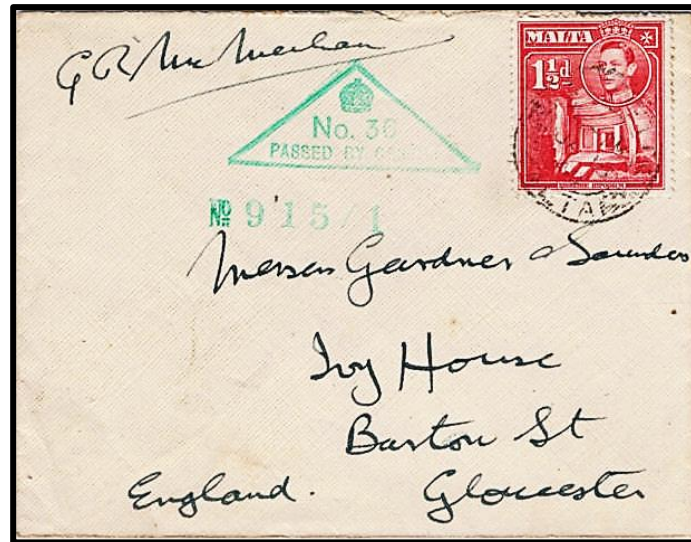 G R
MALTA
1½d
No. 36
PASSED BY
No 915/1
Messrs Gardner & Saunders
Ivy House
Barton St
England. Gloucester